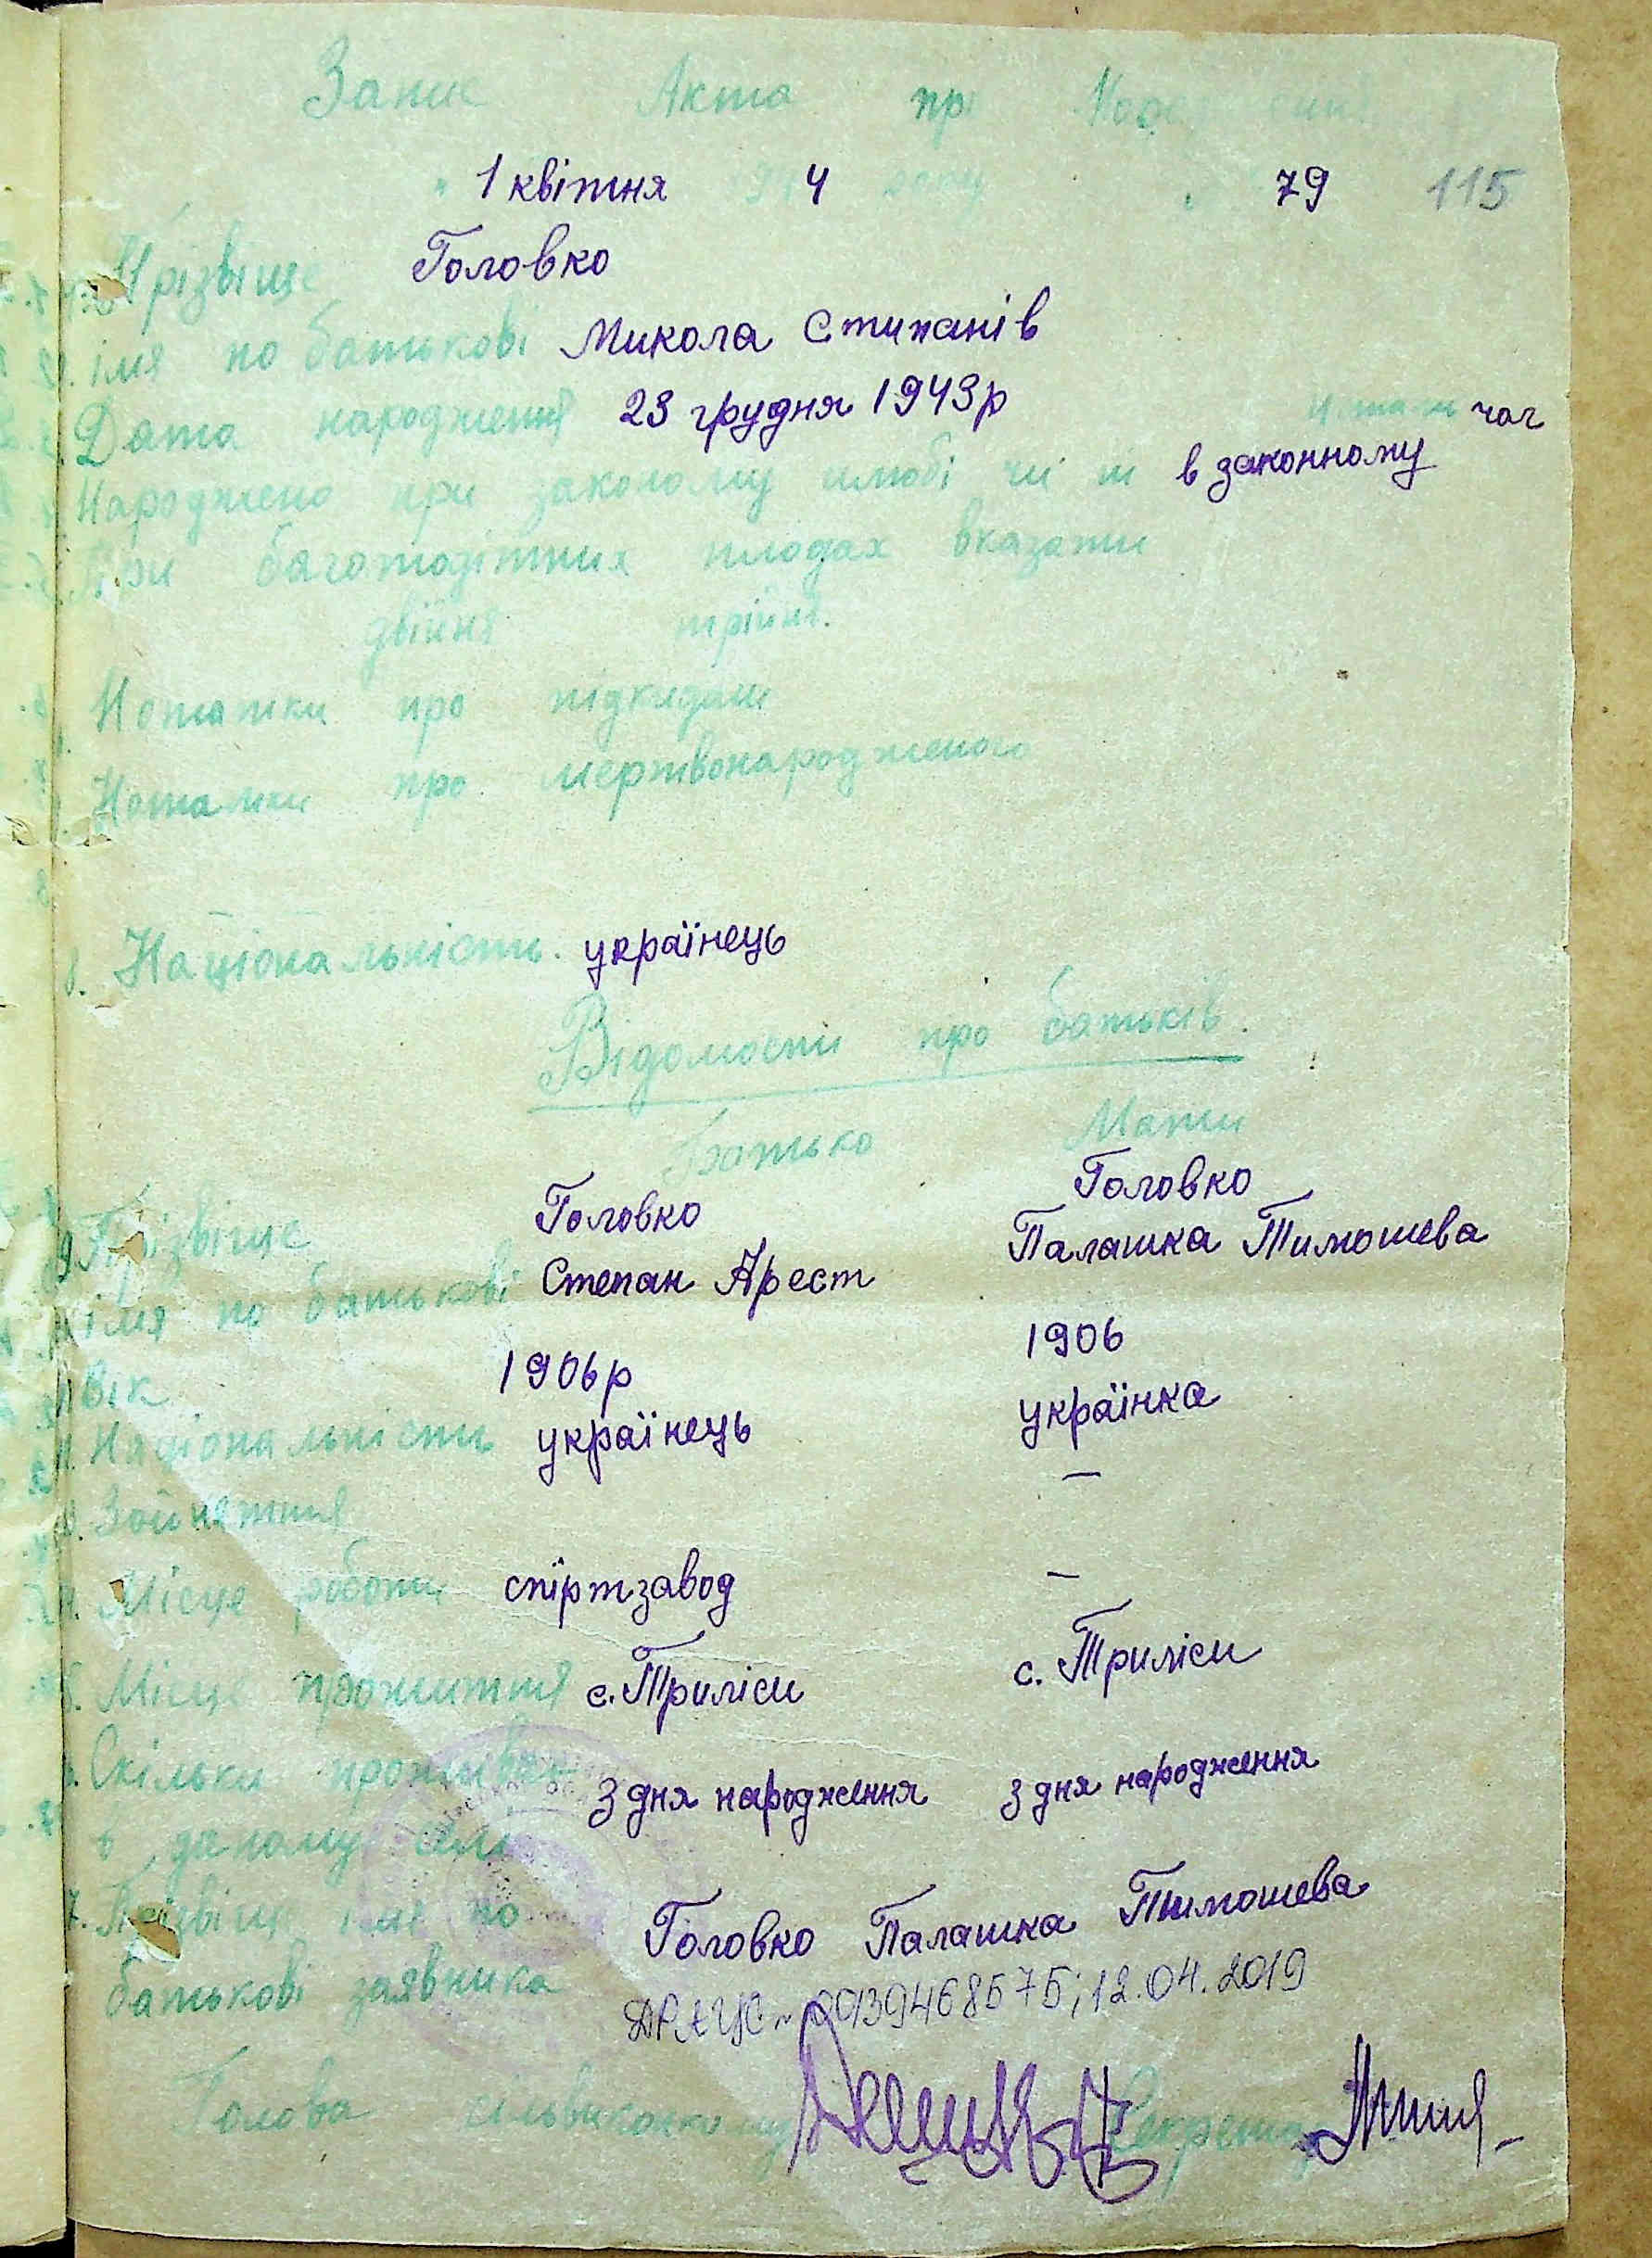 Запис Акта про
1 квітня 4 року 79 115
Прізвіще Головко
імя по батькові Микола Стипанів
Дата народження 23 грудня 1943р чол
Народжено при законому шлюбі чі ні в законному
При багатодітних плодах вказати
двійня трійня.
Нотатки про підкидан
Нотатки про мертвонародженого
8. Національність. українець
Відомости про батьків.
Батько Мати
9 Прізвіще Головко Головко
імя по батькові Степан Арест Палашка Тимошева
Вік 1906р 1906
Національність українець українка
Зайняття —
Місце роботи спіртзавод —
Місце прожиття с. Триліси с. Триліси
Скільки проживає з дня народження з дня народження
в даному селі
7. Прізвіще імя по Головко Палашка Тимошева
батькові заявника
ДРАЦС № 00139468575; 12.04.2019
Голова сільвиконкому Секретар